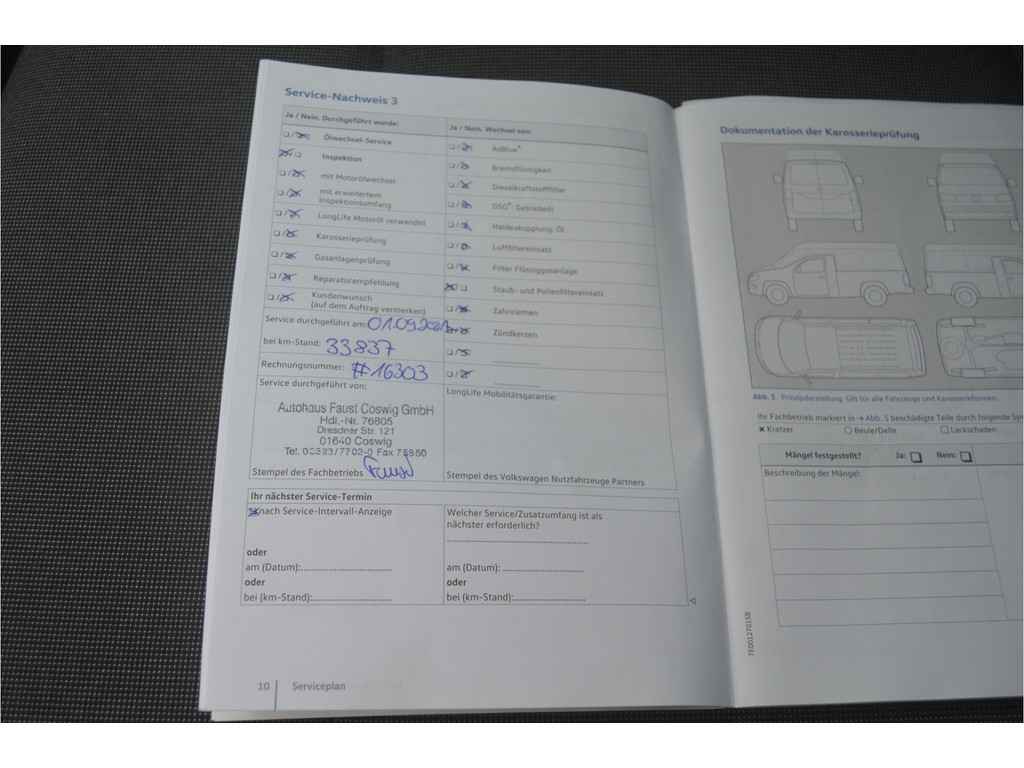 Service-Nachweis 3
Ja / Nein. Durchgeführt wurde:
Ölwechsel-Service
Inspektion
mit Motorölwechsel
mit erweitertem
Inspektionsumfang
LongLife Motoröl verwendet
Karosserieprüfung
Gasanlagenprüfung
Reparaturempfehlung
Kundenwunsch
(auf dem Auftrag vermerken)
Service durchgeführt am:
bei km-Stand: 33837
Rechnungsnummer: #16303
Service durchgeführt von:
Autohaus Faust Coswig GmbH
Hdl.-Nr. 76805
Dresdner Str. 121
01640 Coswig
Stempel des Fachbetriebs
Ja / Nein. Wechsel von:
AdBlue®
Bremsflüssigkeit
Dieselkraftstofffilter
DSG®- Getriebeöl
Haldexkupplung: Öl
Luftfiltereinsatz
Filter Flüssiggasanlage
Staub- und Pollenfiltereinsatz
Zahnriemen
Zündkerzen
LongLife Mobilitätsgarantie:
Stempel des Volkswagen Nutzfahrzeuge Partners
Ihr nächster Service-Termin
nach Service-Intervall-Anzeige
oder
am (Datum):
oder
bei (km-Stand):
Welcher Service/Zusatzumfang ist als
nächster erforderlich?
am (Datum):
oder
bei (km-Stand):
10 Serviceplan
Dokumentation der Karosserieprüfung
Abb. 5 Prinzipdarstellung: Gilt für alle Fahrzeuge und Karosserieformen.
Ihr Fachbetrieb markiert in → Abb. 5 beschädigte Teile durch folgende
Kratzer Beule/Delle Lackschaden
Mängel festgestellt? Ja: Nein:
Beschreibung der Mängel: